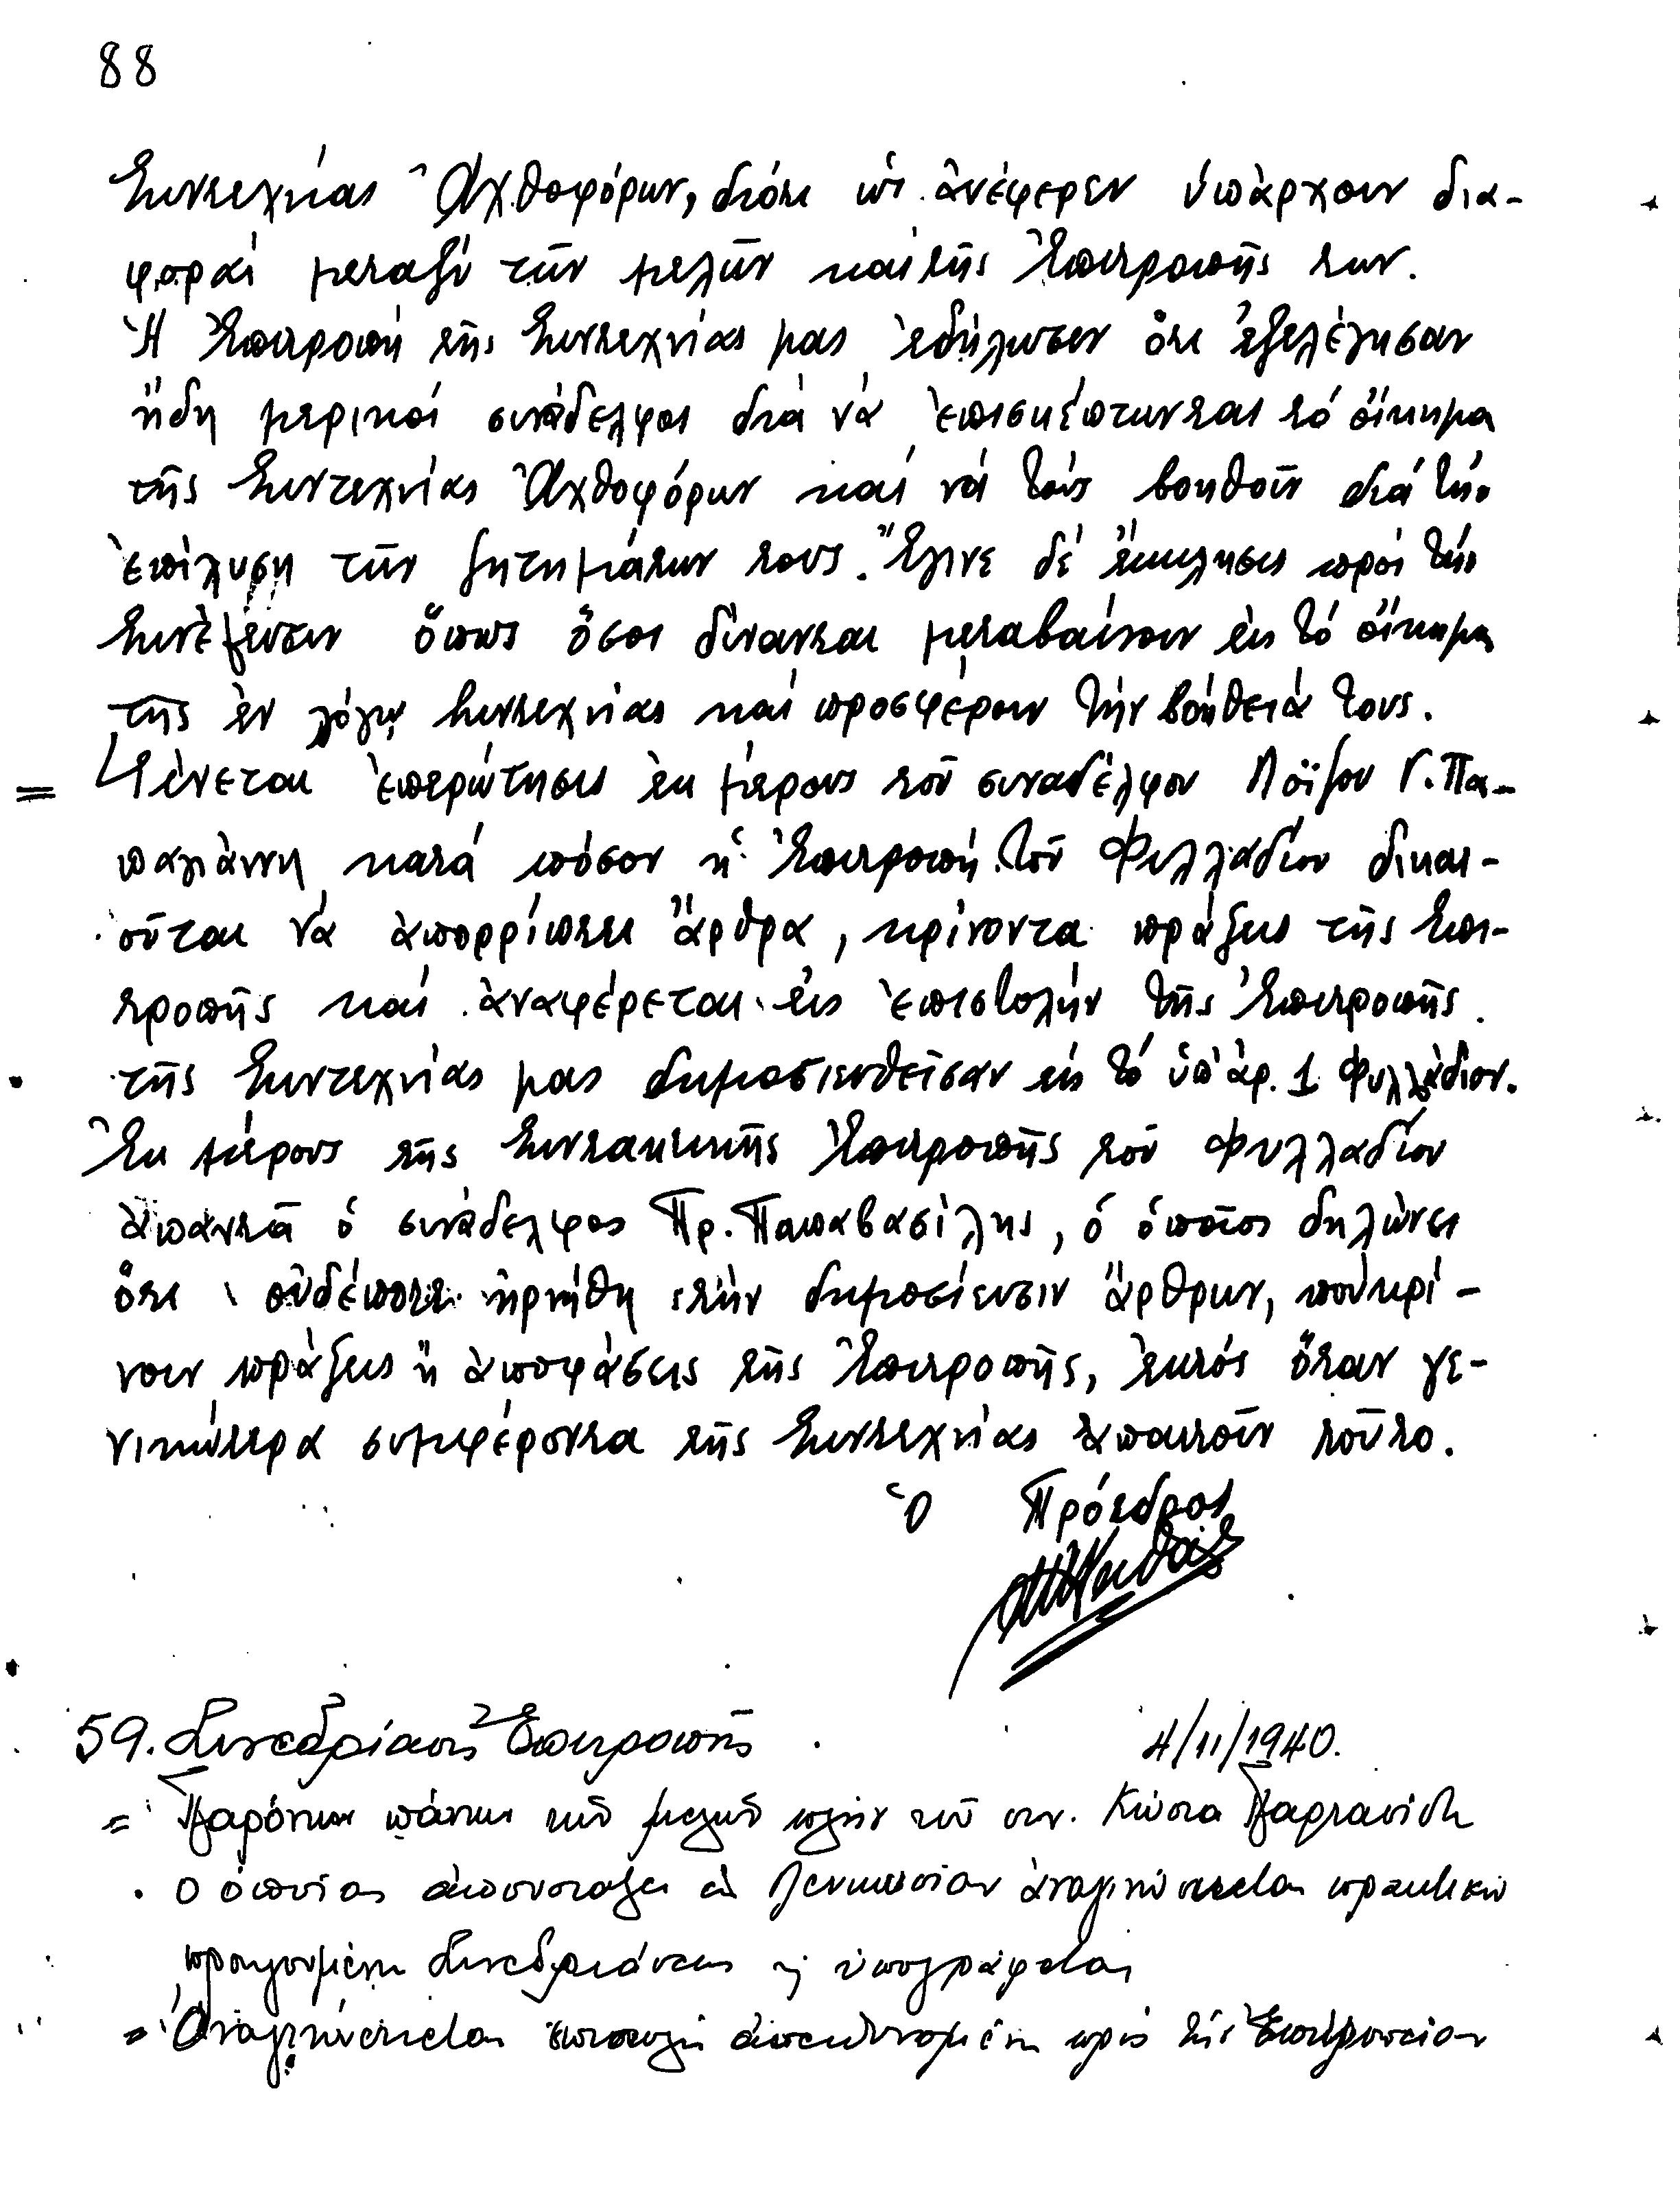 88
Συντεχνίας Ἀχθοφόρων, διότι ὡς ἀνέφερεν ὑπάρχουν δια-
φοραί μεταξύ τῶν μελῶν καί τῆς Ἐπιτροπῆς των.
Ἡ Ἐπιτροπή τῆς Συντεχνίας μας ἐδήλωσεν ὅτι ἐξελέγησαν
ἤδη μερικοί συνάδελφοι διά νά ἐπισκέπτωνται τό οἴκημα
τῆς Συντεχνίας Ἀχθοφόρων καί νά τούς βοηθοῦν διά τήν
ἐπίλυση τῶν ζητημάτων τους. Ἔγινε δέ ἔκκλησις πρός τήν
Συνέλευσιν ὅπως ὅσοι δύνανται μεταβαίνουν εἰς τό οἴκημα
τῆς ἐν λόγῳ Συντεχνίας καί προσφέρουν τήν βοήθειά τους.
= Γίνεται ἐπερώτησις ἐκ μέρους τοῦ συναδέλφου Λοΐζου Γ. Πα-
παγιάννη κατά πόσον ἡ Ἐπιτροπή τοῦ Φυλλαδίου δικαι-
οῦται νά ἀπορρίπτει ἄρθρα, κρίνοντα πράξεις τῆς Ἐπι-
τροπῆς καί ἀναφέρεται εἰς ἐπιστολήν τῆς Ἐπιτροπῆς
τῆς Συντεχνίας μας δημοσιευθεῖσαν εἰς τό ὑπ' ἀρ. 1 Φυλλάδιον.
Ἐκ μέρους τῆς Συντακτικῆς Ἐπιτροπῆς τοῦ Φυλλαδίου
ἀπαντᾶ ὁ συνάδελφος Πρ. Παπαβασίλης, ὁ ὁποῖος δηλώνει
ὅτι οὐδέποτε ἠρνήθη τήν δημοσίευσιν ἄρθρων, πού κρί-
νουν πράξεις ἤ ἀποφάσεις τῆς Ἐπιτροπῆς, ἐκτός ὅταν γε-
νικώτερα συμφέροντα τῆς Συντεχνίας ἀπαιτοῦν τοῦτο.
Ὁ Πρόεδρος
59. Συνεδρίασις Ἐπιτροπῆς 4/11/1940.
= Παρόντων πάντων τῶν μελῶν πλήν τοῦ συν. Κώστα
ὁ ὁποῖος ἀπουσιάζει εἰς Λευκωσίαν ἀναγινώσκεται πρακτικά
προηγουμένης Συνεδριάσεως ϗ ὑπογράφεται
= Ἀναγινώσκεται ἐπιστολή ἀπευθυνομένη πρός τήν Ἐπιτροπείαν